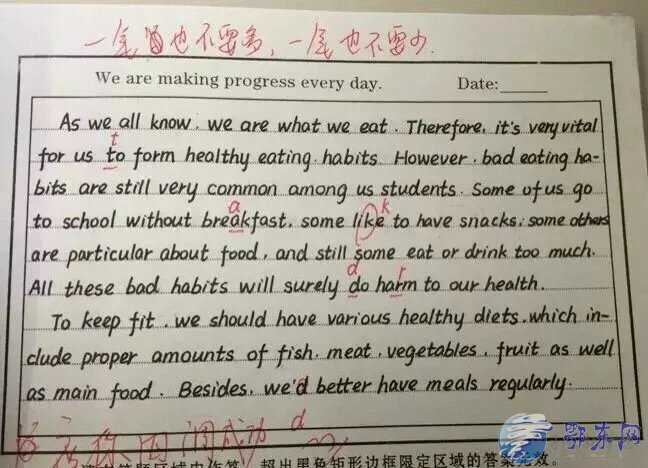 一笔也不要多，一笔也不要少.
We are making progress every day. Date:
As we all know, we are what we eat. Therefore, it's very vital
t
for us to form healthy eating habits. However, bad eating ha-
bits are still very common among us students. Some of us go
a k
to school without breakfast, some like to have snacks; some others
are particular about food, and still some eat or drink too much.
d r
All these bad habits will surely do harm to our health.
To keep fit, we should have various healthy diets, which in-
clude proper amounts of fish, meat, vegetables, fruit as well
as main food. Besides, we'd better have meals regularly.
d
成功
答题区域内作答，超出黑色矩形边框限定区域的答案无效。
鄂东网